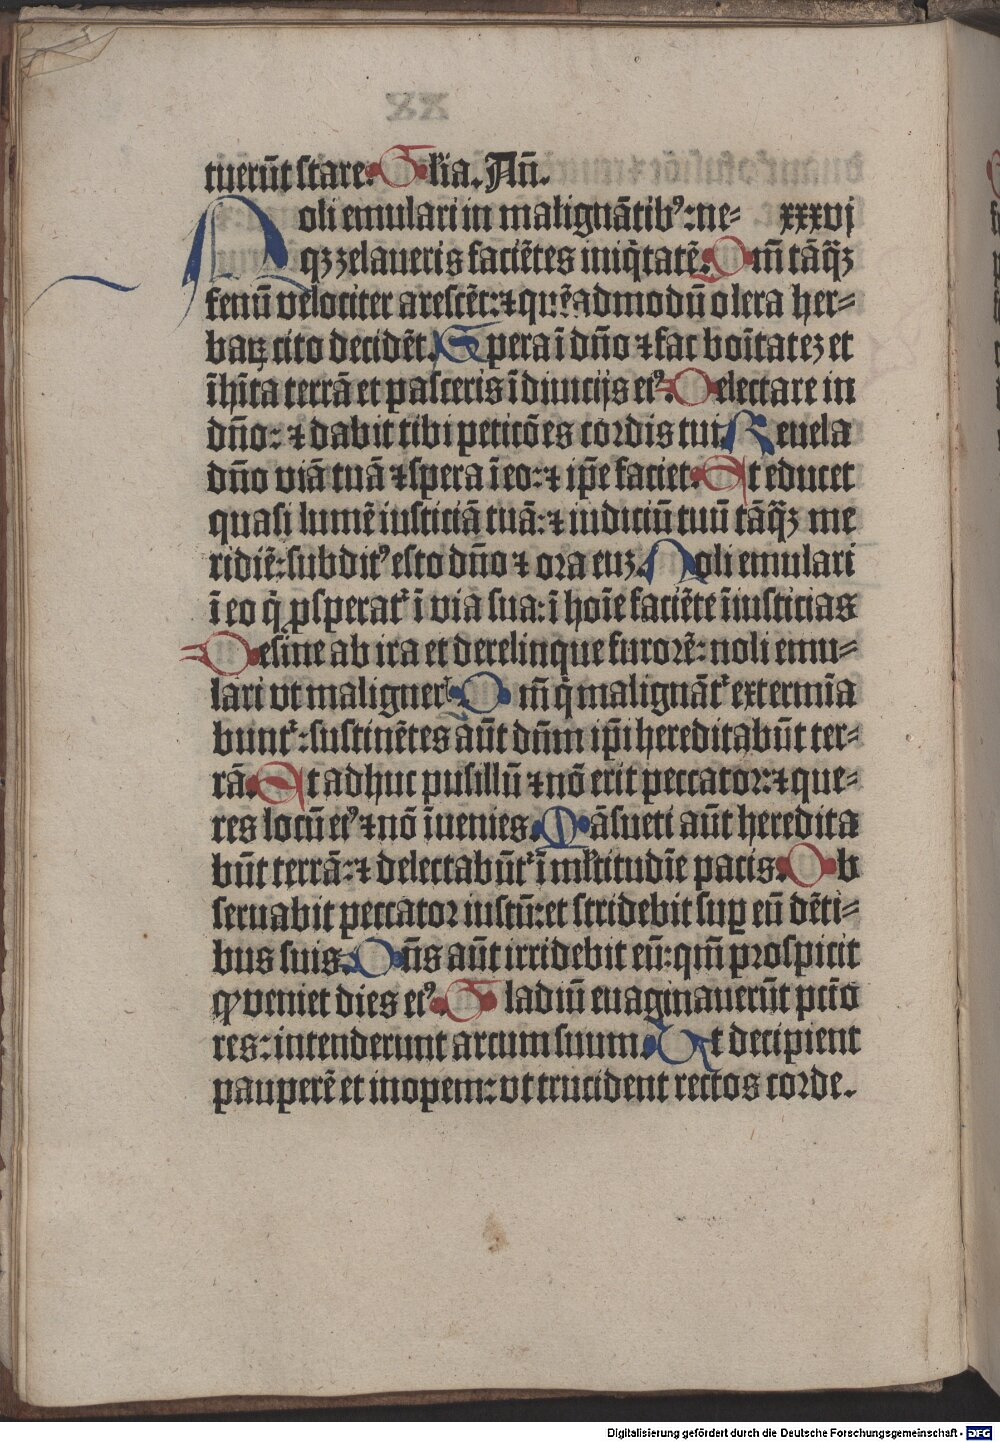 tuerūt stare. Glīa. Añ.
Noli emulari in malignātibꝰ: ne= xxxvj
qꝫ zelaueris faciētes iniq̄tatē. Om̄ tāq̄ꝫ
fenū velociter arescēt: ⁊ quēadmodū olera her=
baꝝ cito decidēt. Spera ī dño ⁊ fac boītatez et
īhīta terrā et pasceris ī diuicijs eiꝰ. Delectare in
dño: ⁊ dabit tibi peticōes cordis tui. Reuela
dño viā tuā ⁊ spera ī eo: ⁊ ip̄e faciet. Et educet
quasi lumē iusticiā tuā: ⁊ iudiciū tuū tāq̄ꝫ me
ridiē: subditꝰ esto dño ⁊ ora euz. Noli emulari
ī eo q̄ ꝓsperatʳ ī via sua: ī hoīe faciēte īiusticias
Desine ab ira et derelinque furorē: noli emu=
lari vt maligneris. Qm̄ q̄ malignātʳ extermīa
buntʳ: sustinētes aūt dn̄m ip̄i hereditabūt ter=
rā. Et adhuc pusillū ⁊ nō erit peccator: ⁊ que=
res locū eiꝰ ⁊ nō īuenies. Māsueti aūt heredita
būt terrā: ⁊ delectabūtʳ ī ml̄titudīe pacis. Ob
seruabit peccator iustū: et stridebit suꝑ eū dēti=
bus suis. Dn̄s aūt irridebit eū: qm̄ prospicit
ꝙ veniet dies eiꝰ. Gladiū euaginauerūt pctō
res: intenderunt arcum suum. Ut decipient
pauperē et inopem: vt trucident rectos corde.
Digitalisierung gefördert durch die Deutsche Forschungsgemeinschaft - DFG